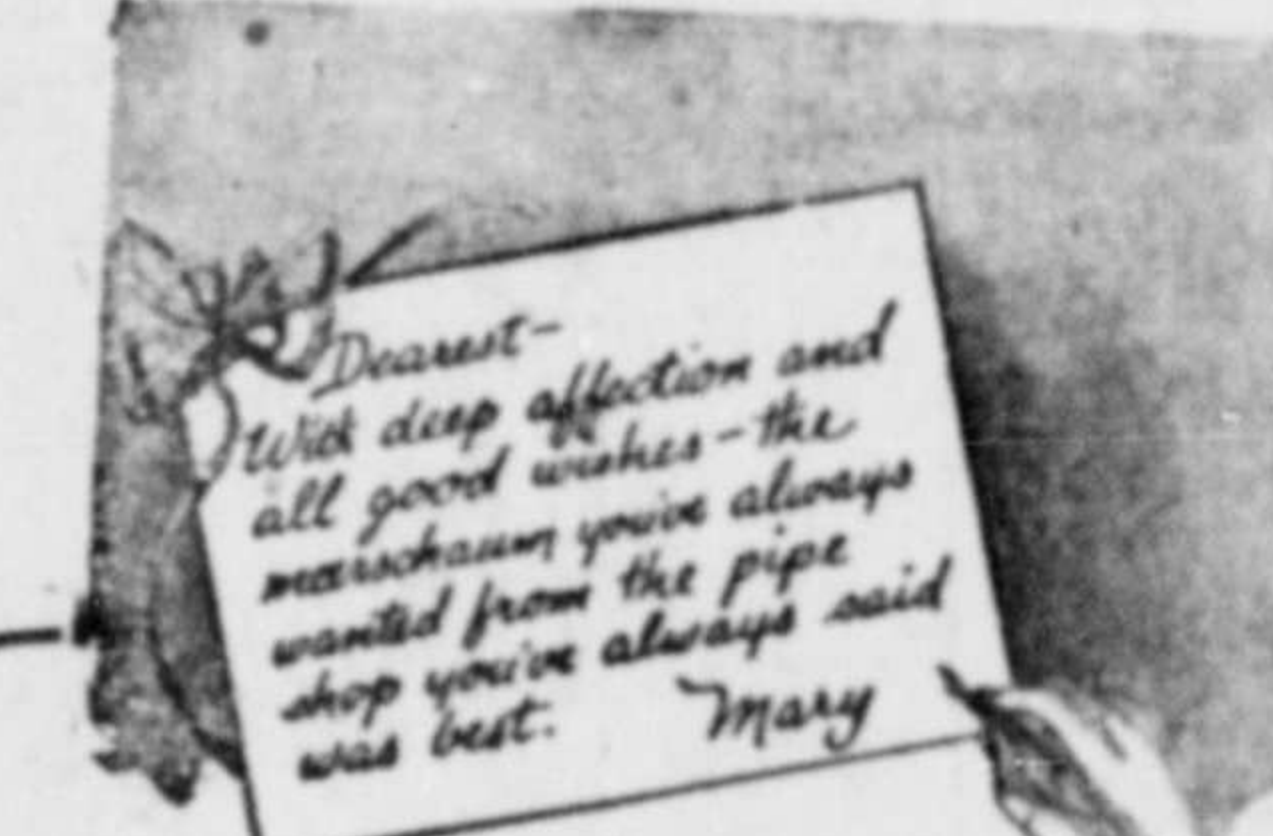 Dearest—
With deep affection and
all good wishes—the
meerschaum you've always
wanted from the pipe
shop you've always said
was best. Mary